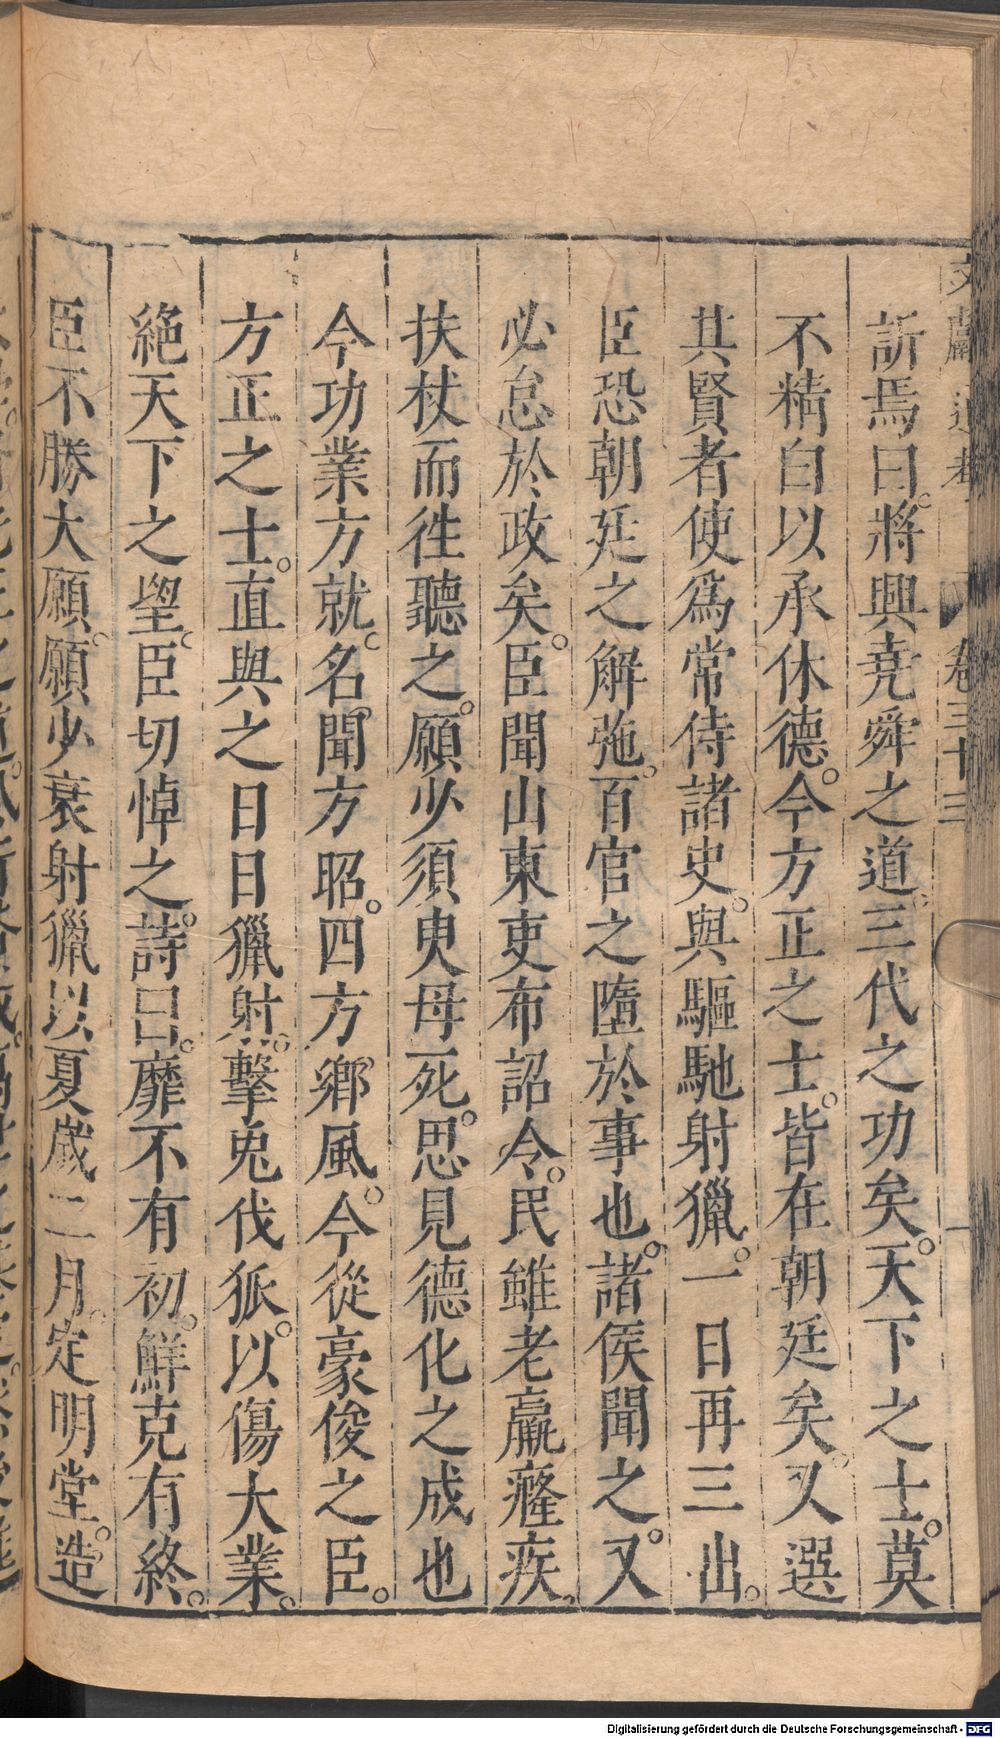 訢焉曰。將興堯舜之道。三代之功矣。天下之士。莫
不精白以承休德。今方正之士。皆在朝廷矣。又選
其賢者使爲常侍諸史。與驅馳射獵。一日再三出。
臣恐朝廷之解弛。百官之墮於事也。諸侯聞之。又
必怠於政矣。臣聞山東吏布詔令。民雖老羸癃疾。
扶杖而徃聽之。願少須臾毋死。思見德化之成也
今功業方就。名聞方昭。四方鄉風。今從豪俊之臣。
方正之士。直與之日日獵射。擊兎伐狐。以傷大業。
絶天下之望。臣切悼之。詩曰。靡不有初。鮮克有終。
臣不勝大願。願少衰射獵以夏歲二月。定明堂。造
卷三十三
Digitalisierung gefördert durch die Deutsche Forschungsgemeinschaft - DFG